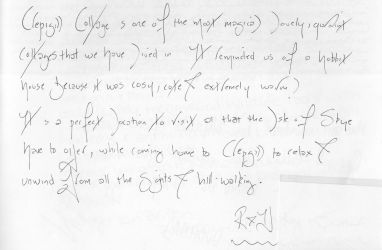 Clepigill Cottage is one of the most magical, lovely, quaintest
cottages that we have lived in. It reminded us of a hobbit
house because it was cosy, cute & extremely warm!
It is a perfect location to visit all that the Isle of Skye
have to offer, while coming home to Clepigill to relax &
unwind from all the sights & hill-walking.